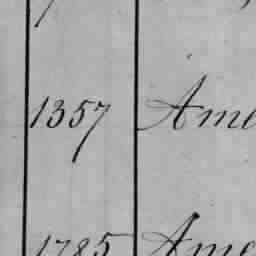 1357 Ame
1785 Ame